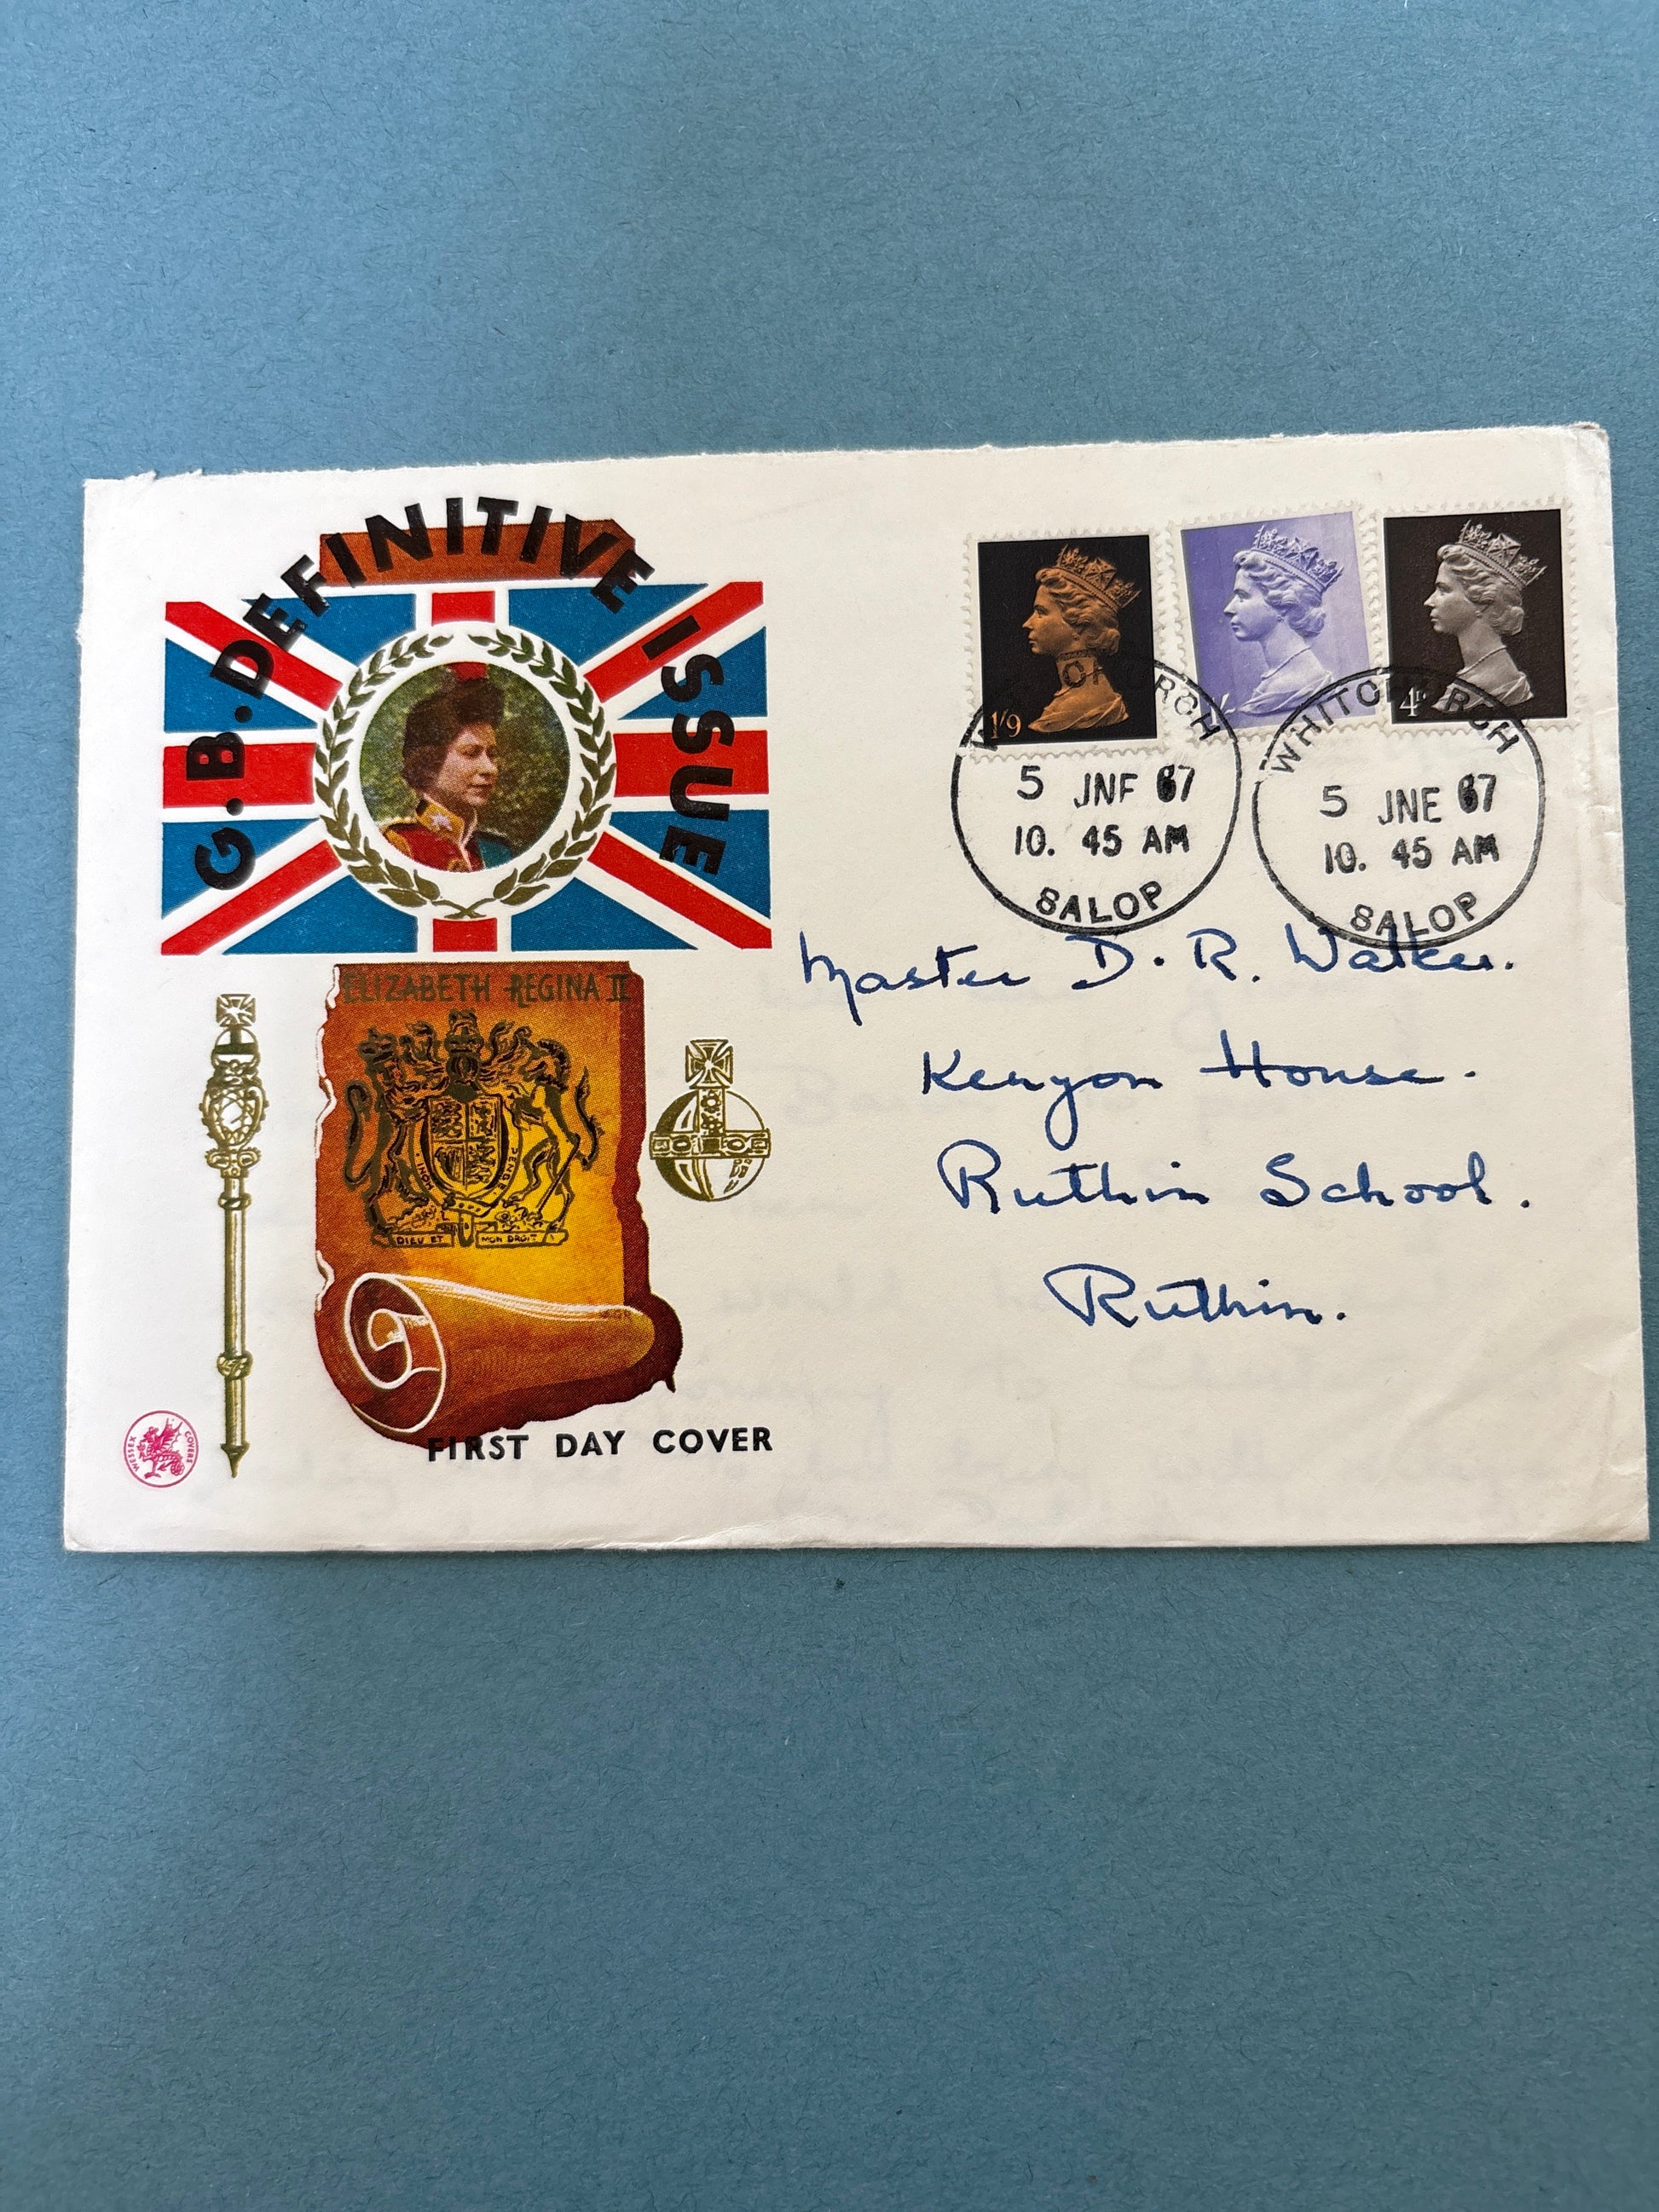 G.B. DEFINITIVE ISSUE
ELIZABETH REGINA II
HONI
PENSE
DIEU ET MON DROIT
WESSEX COVERS
FIRST DAY COVER
1/9
4D
CHURCH
5 JNE 67
10. 45 AM
SALOP
WHITCHURCH
5 JNE 67
10. 45 AM
SALOP
Master D. R. Walker.
Kenyon House.
Ruthin School.
Ruthin.